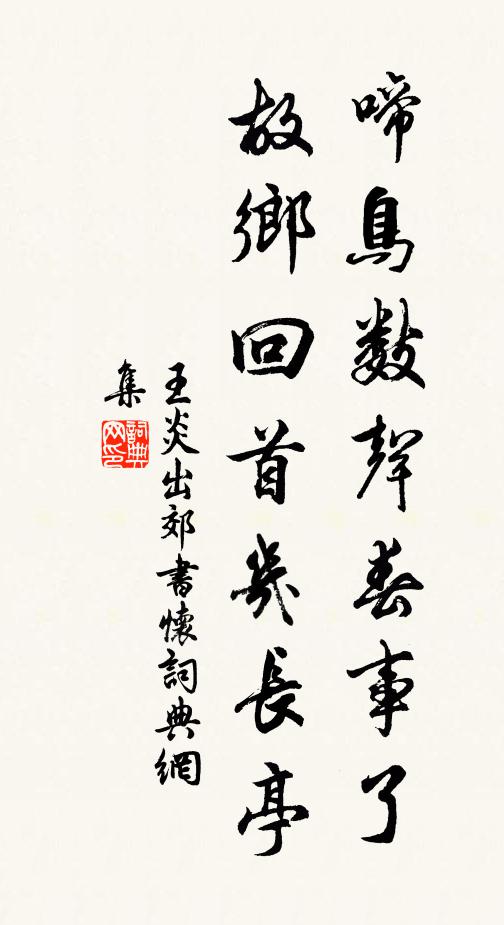 啼鳥數聲春事了
故鄉回首幾長亭
王炎出郊書懷詞典網
集
詞典
网印